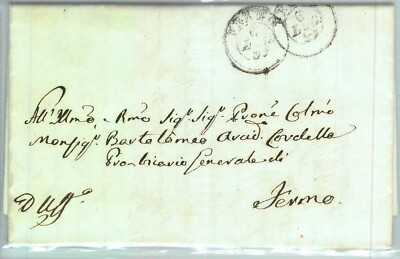 All'Illmo e Rmo Sigr. Sigr. Prone Colmo
Monsigr. Bartolomeo Arcid. Cordella
Pro-Vicario Generale di
Fermo.
D'Uff.o